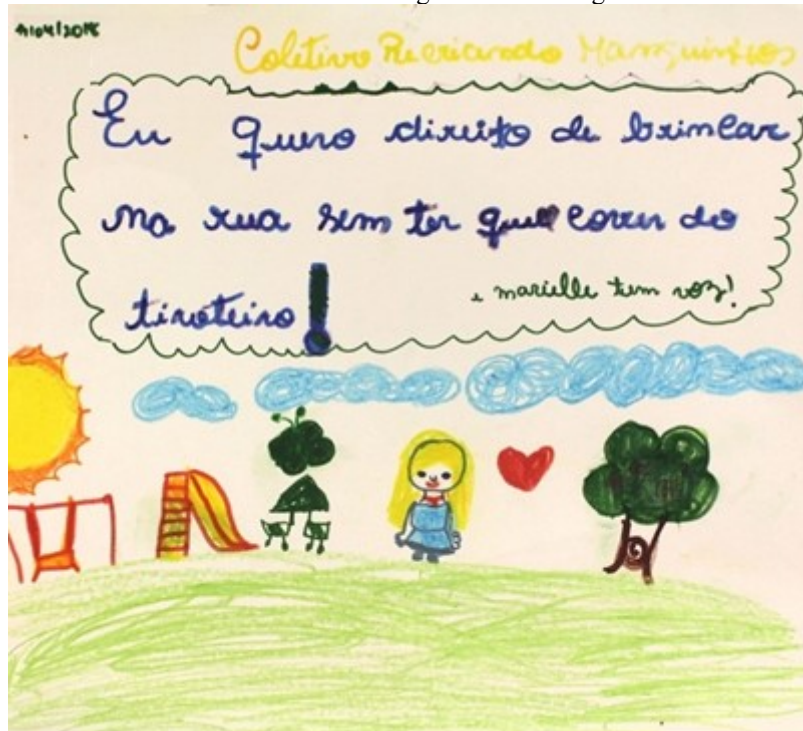 Coletivo Recriando Manguinhos
Eu quero direito de brincar
na rua sem ter que correr do
tiroteiro!
e marielle tem voz!